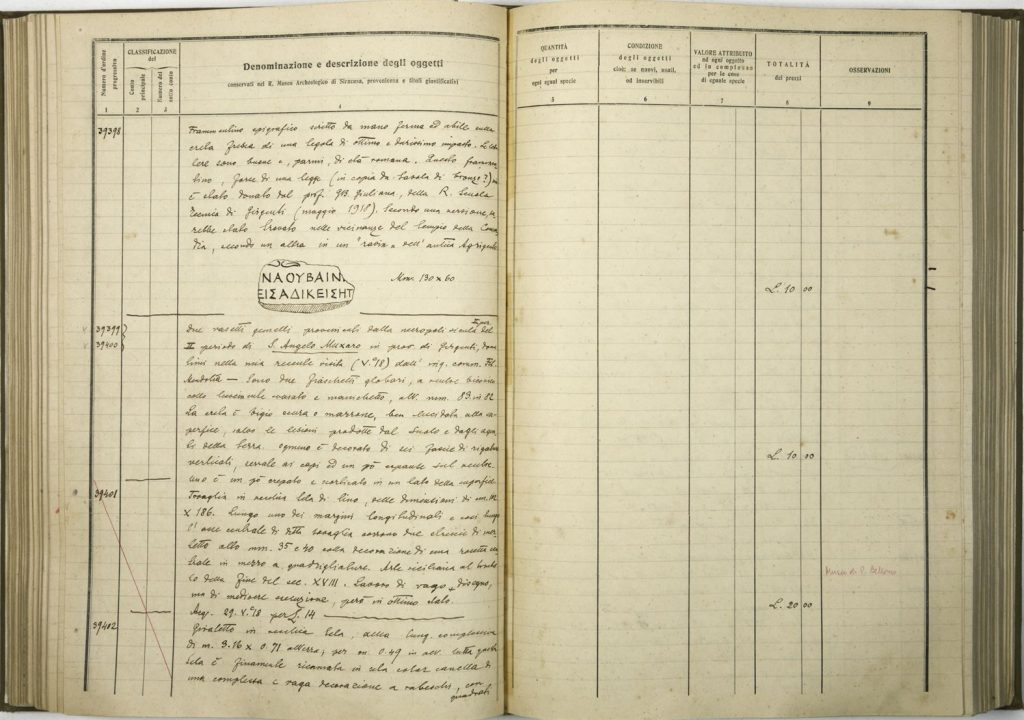 Numero d'ordine progressivo
CLASSIFICAZIONE
del
Conto principale
Numero del sotto conto
Denominazione e descrizione degli oggetti
conservati nel R. Museo Archeologico di Siracusa, provenienza e titoli giustificativi
1 2 3 4
39398 Frammentino epigrafico scritto da mano ferma ed abile sulla
creta fresca di una tegola di ottimo e durissimo impasto. Le let
tere sono buone e, parmi, di età romana. Questo frammen
tino, forse di una legge (in copia da tavola di bronzo?)
è stato donato dal prof. Giuliana, della R. Scuola
Tecnica di Girgenti (maggio 1918). Secondo una versione, sa
rebbe stato trovato nelle vicinanze del tempio della Concor
dia, secondo un altra in un "robba" dell'antica Agrigento
ΝΑΟΥΒΑΙΝ
ΕΙΣΑΔΙΚΕΙΣΗΤ
Mm. 130 x 60
39399 Due vasetti gemelli provenienti dalla necropoli sicula del
39400 II periodo di S. Angelo Muxaro in prov. di Girgenti, do
natimi nella mia recente visita (V.º18) dall' sig. comm. Fil.
Mendolia — Sono due fiaschetti globari, a ventre biconico
collo lievemente svasato e manichetto, alt. mm. 83 in 82
La creta è bigio scura o marrone, ben lucidata alla su
perfice, salvo le lesioni prodotte dal suolo e dagli agen
ti della terra. Ognuno è decorato di sei fascie di rigature
verticali, serrate ai capi ed un pò espante sul ventre.
Uno è un pò crepato e scorticato in un lato della superfice
39401 Tovaglia in vecchia tela di lino, delle dimensioni di m.
x 186. Lungo uno dei margini longitudinali e così lungo
l'asse centrale di detta tovaglia corrono due striscie di mer
letto alto mm. 35 e 40 colla decorazione di una rosetta cen
trale in mezzo a quadrigliature. Arte siciliana al tombo
lo della fine del sec. XVIII. Lavoro di vago disegno,
ma di mediocre esecuzione, però in ottimo stato.
Acq. 29. V.º18 per L. 14
39402 Giraletto in vecchia tela, della lung. complessiva
di m. 3.16 x 0.71 altezza; per m. 0.49 in alt. tutta questa
tela è finamente ricamata in seta color canella di
una complessa e vaga decorazione a rabeschi, con
quadrati
QUANTITÀ
degli oggetti
per
ogni egual specie
CONDIZIONE
degli oggetti
cioè: se nuovi, usati,
od inservibili
VALORE ATTRIBUITO
ad ogni oggetto
ed in complesso
per le cose
di eguale specie
TOTALITÀ
dei prezzi
OSSERVAZIONI
5 6 7 8 9
L. 10 00
L. 10 00
Museo di P. Bellomo
L. 20 00